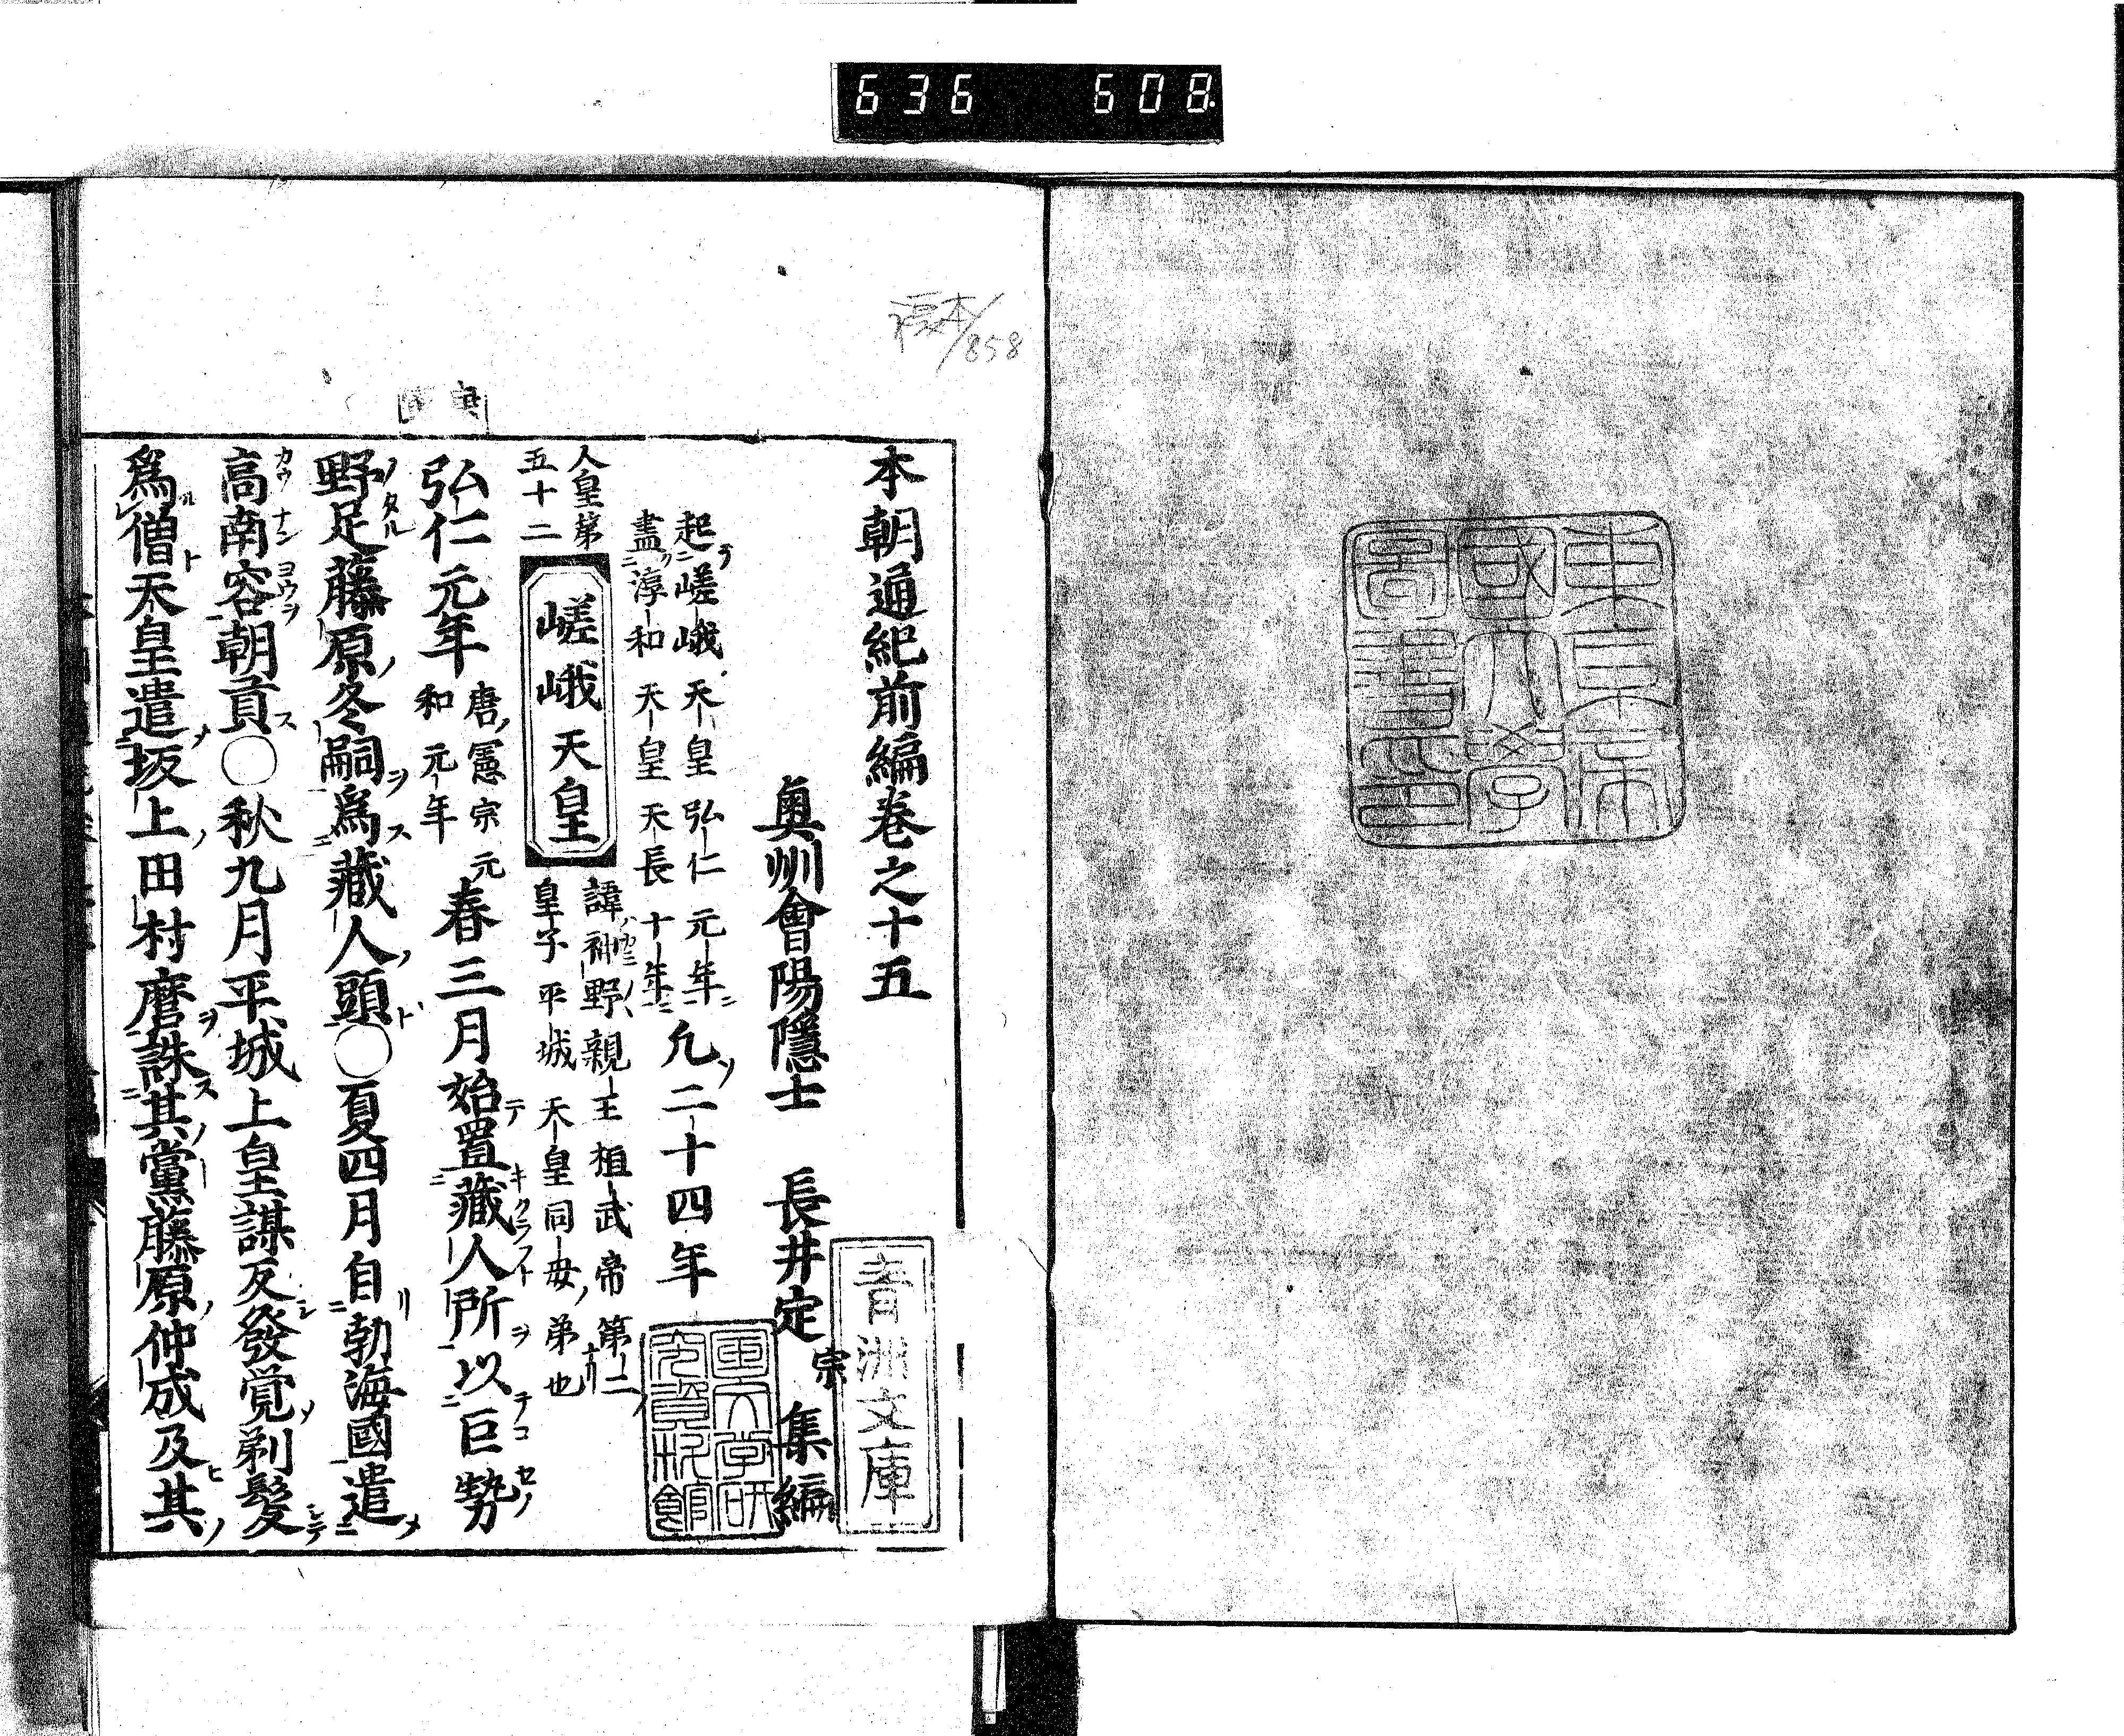 636 608
東京帝
國大學
圖書印
858
本朝通紀前編巻之十五
奥州會陽隱士 長井定宗 集編
青洲文庫
起嵯峨天皇弘仁元年
盡淳和天皇天長十年
凢二十四年
人皇第
五十二
嵯峨天皇
諱神野親王桓武帝第二
皇子平城天皇同母弟也
弘仁元年
唐憲宗元
和元年
春三月始置藏人所以巨勢
野足藤原冬嗣爲藏人頭〇夏四月自勃海國遣
高南容朝貢〇秋九月平城上皇謀反發覚剃髮
爲僧天皇遣坂上田村麿誅其黨藤原仲成及其